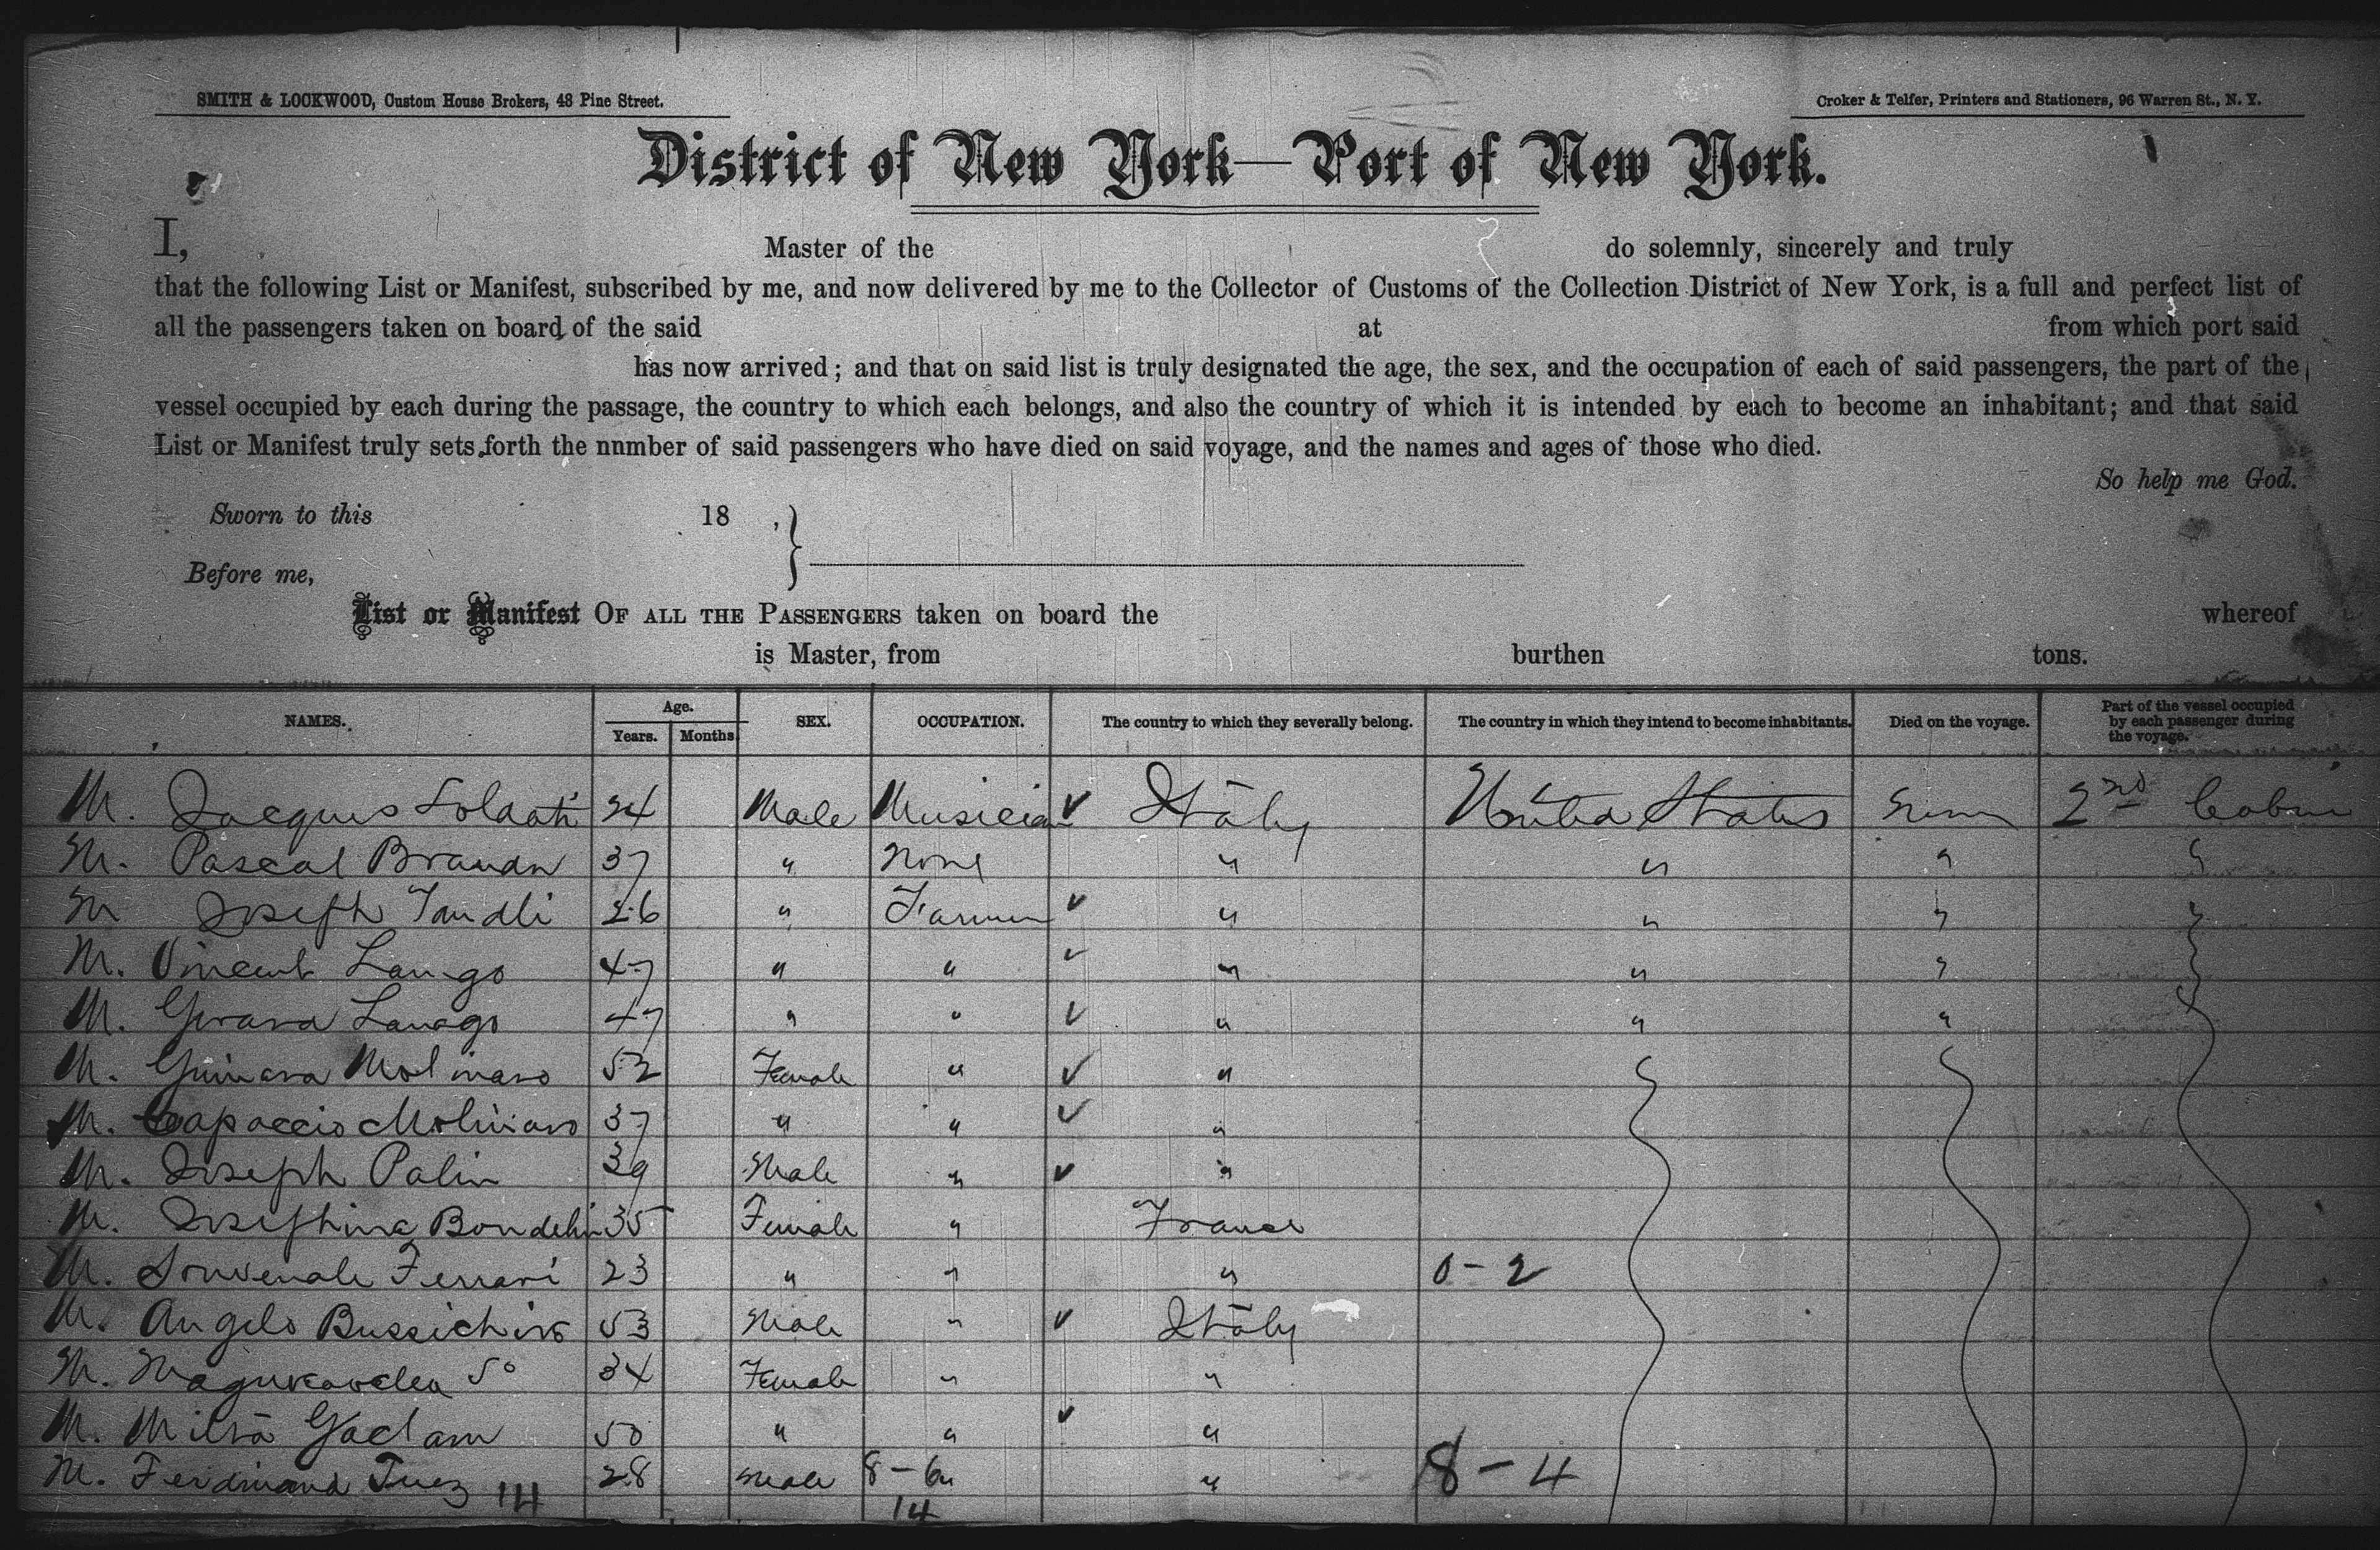 SMITH & LOCKWOOD, Custom House Brokers, 48 Pine Street.
Croker & Telfer, Printers and Stationers, 96 Warren St., N. Y.
District of New York—Port of New York.
I, Master of the do solemnly, sincerely and truly
that the following List or Manifest, subscribed by me, and now delivered by me to the Collector of Customs of the Collection District of New York, is a full and perfect list of
all the passengers taken on board of the said at from which port said
has now arrived; and that on said list is truly designated the age, the sex, and the occupation of each of said passengers, the part of the
vessel occupied by each during the passage, the country to which each belongs, and also the country of which it is intended by each to become an inhabitant; and that said
List or Manifest truly sets forth the nnmber of said passengers who have died on said voyage, and the names and ages of those who died.
So help me God.
Sworn to this 18 ,
Before me,
List or Manifest OF ALL THE PASSENGERS taken on board the whereof
is Master, from burthen tons.
NAMES. Age. Years. Months. SEX. OCCUPATION. The country to which they severally belong. The country in which they intend to become inhabitants. Died on the voyage. Part of the vessel occupied by each passenger during the voyage.
M. Jacques 24 Male Musician ✓ Italy United States 2nd Cabin
M. Pascal 37 " None " " " "
M Joseph 26 " Farmer ✓ " " " "
M. Vincent 47 " " ✓ " " "
M. 47 " " ✓ " " "
M. Molinaro 52 Female " ✓ "
M. Capaccio Molinaro 37 " " ✓ "
M. Joseph Palin 39 Male " ✓ "
M. Josephine 35 Female " France
M. Ferrari 23 " " " 0-2
M. Angelo 53 Male " ✓ Italy
M. 34 Female " "
M. 50 " " ✓ "
M. Ferdinand 14 28 Male 8-6 " " 8-4
14